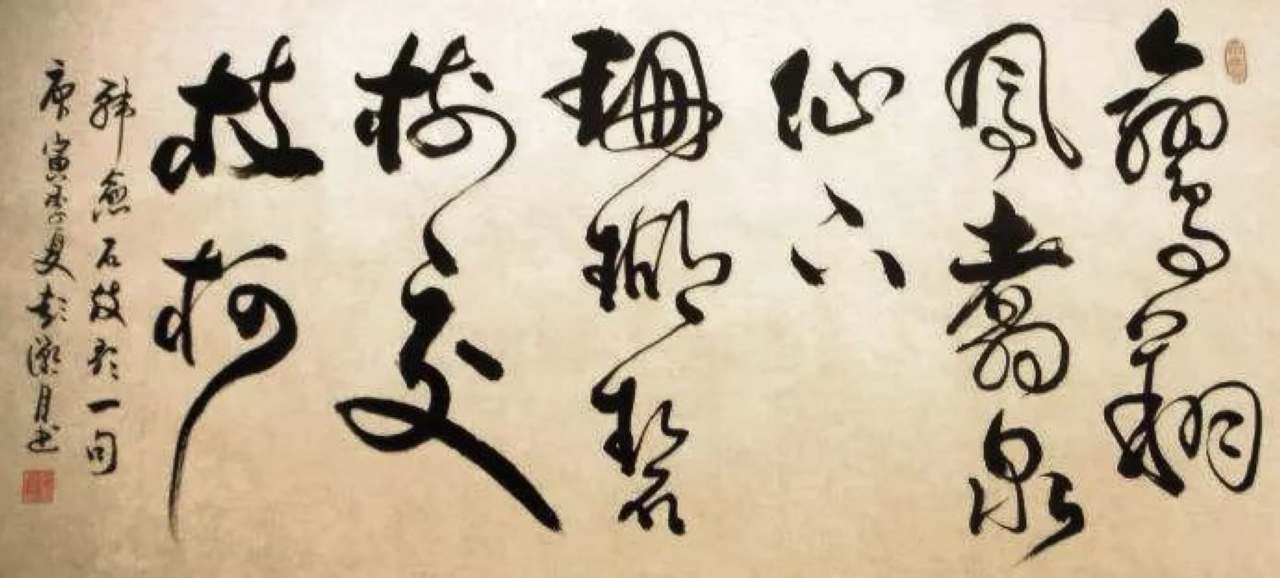 鸞翔
鳳翥衆
仙下
珊瑚碧
樹交
枝柯
韓愈石鼓歌一句
庚寅季夏彭月书